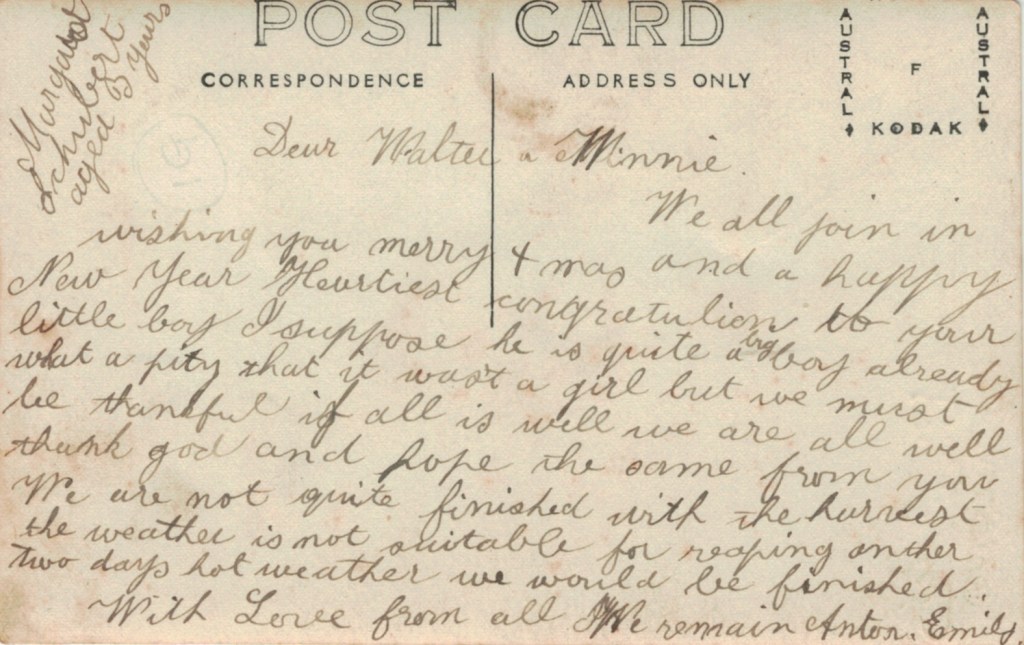 POST CARD
CORRESPONDENCE
ADDRESS ONLY
AUSTRAL
F
AUSTRAL
KODAK
Margaret
Schubert
aged 3 years
Dear Walter a Minnie.
We all join in
wishing you merry Xmas and a happy
New Year Heartiest congratulion to your
little boy I suppose he is quite a big boy already
what a pity that it wast a girl but we must
be thankful if all is well we are all well
thank god and hope the same from you
We are not quite finished with the harvest
the weather is not suitable for reaping anther
two days hot weather we would be finished.
With Love from all We remain Anton. Emily.